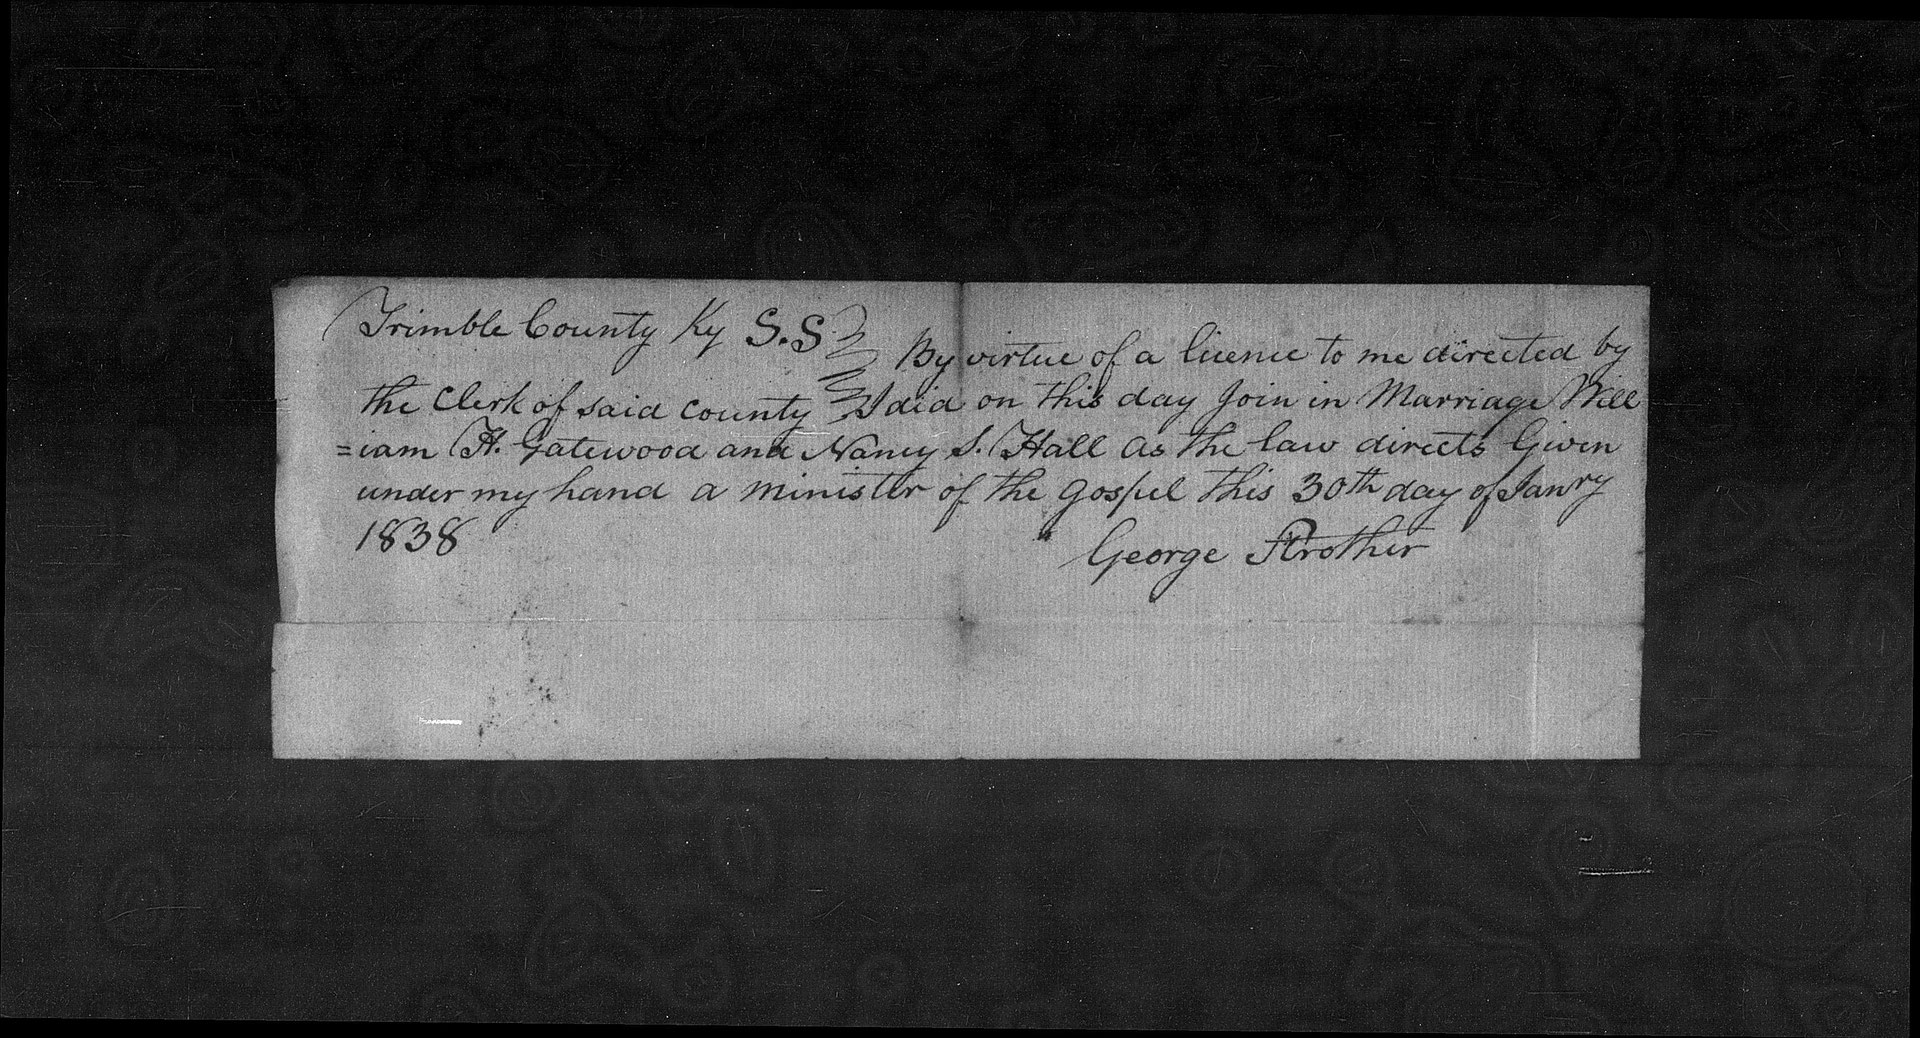 Trimble County Ky S.S
By virtue of a licence to me directed by
the Clerk of said county I did on this day Join in Marriage Will
=iam H. Gatewood and Nancy S. Hall as the law directs Given
under my hand a minister of the gospel this 30th day of Janry
1838
George Strother